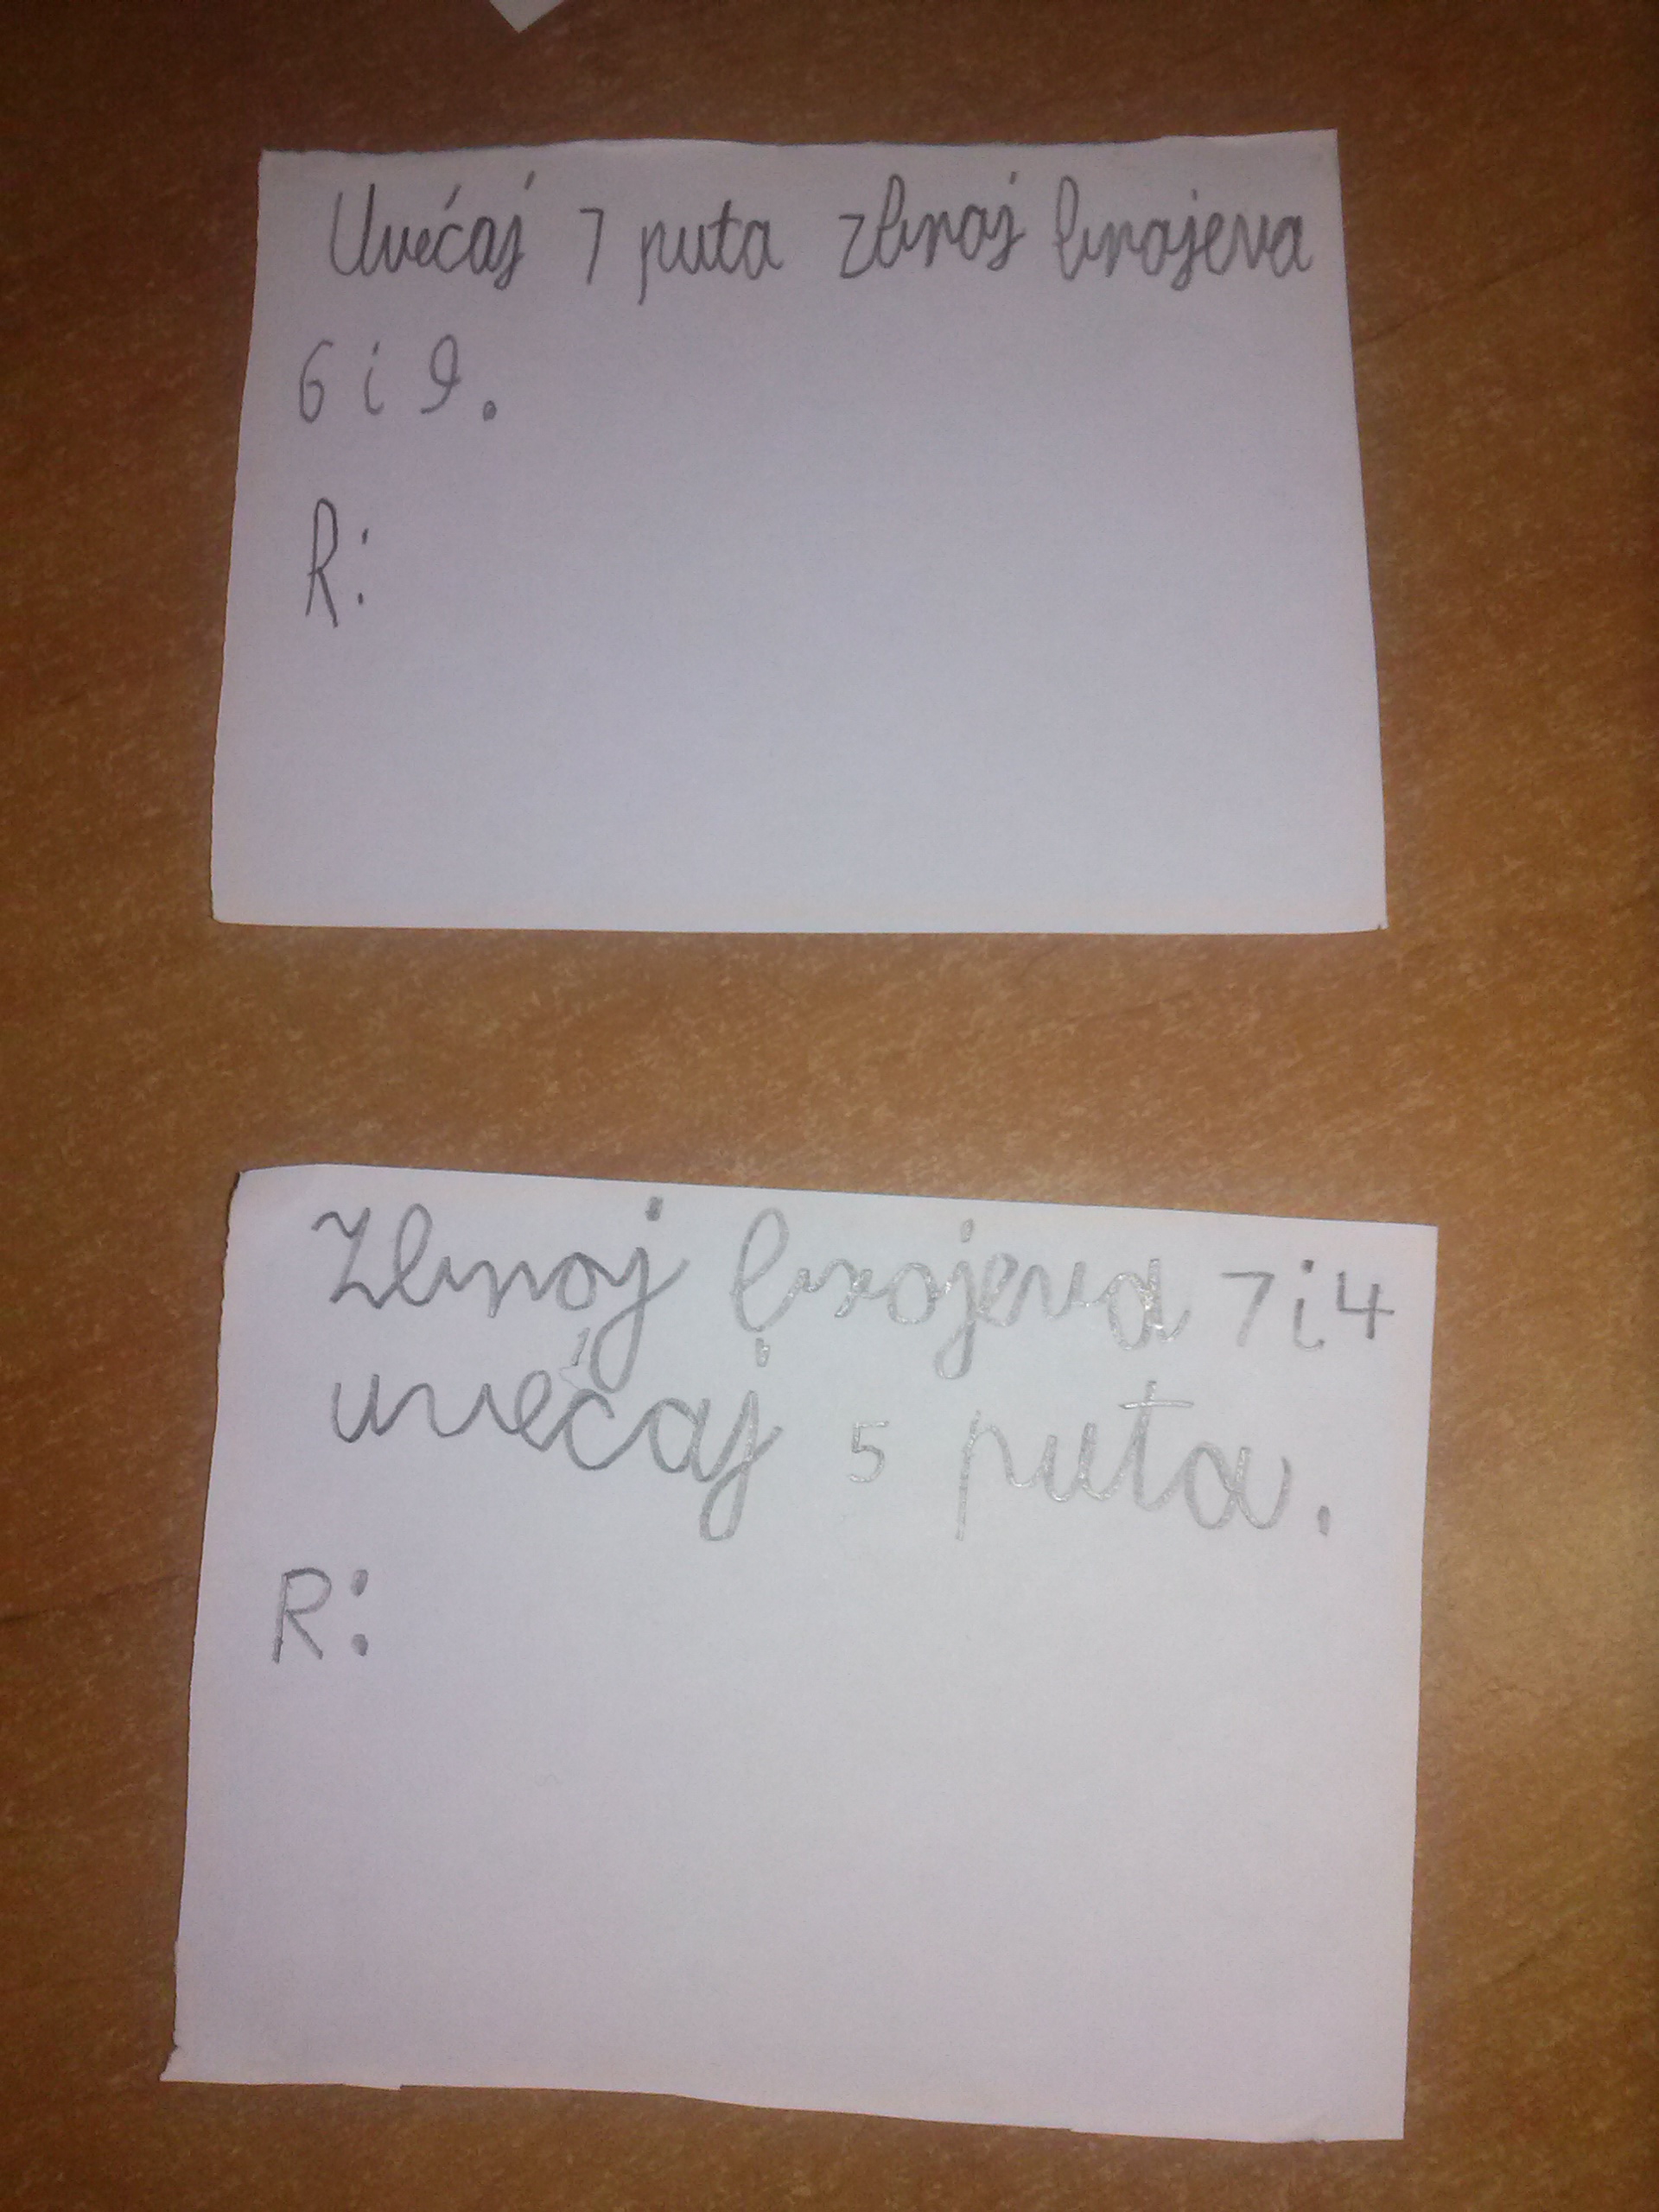 Uvećaj 7 puta zbroj brojeva
6 i 9.
R:
Zbroj brojeva 7 i 4
uvećaj 5 puta.
R: